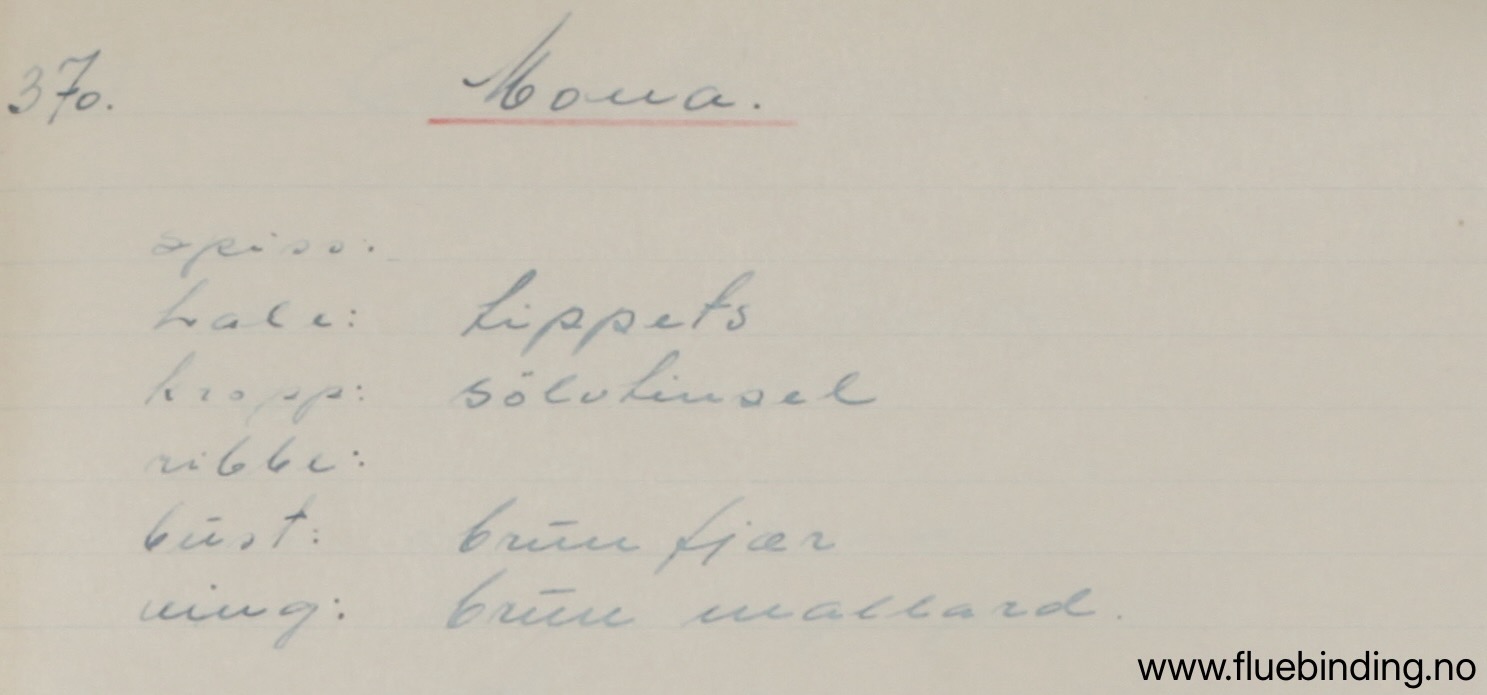 370. Mona.
spiss:
hale: tippets
kropp: sölvtinsel
ribbe:
büst: brün fjær
ving: brün mallard.
www.fluebinding.no